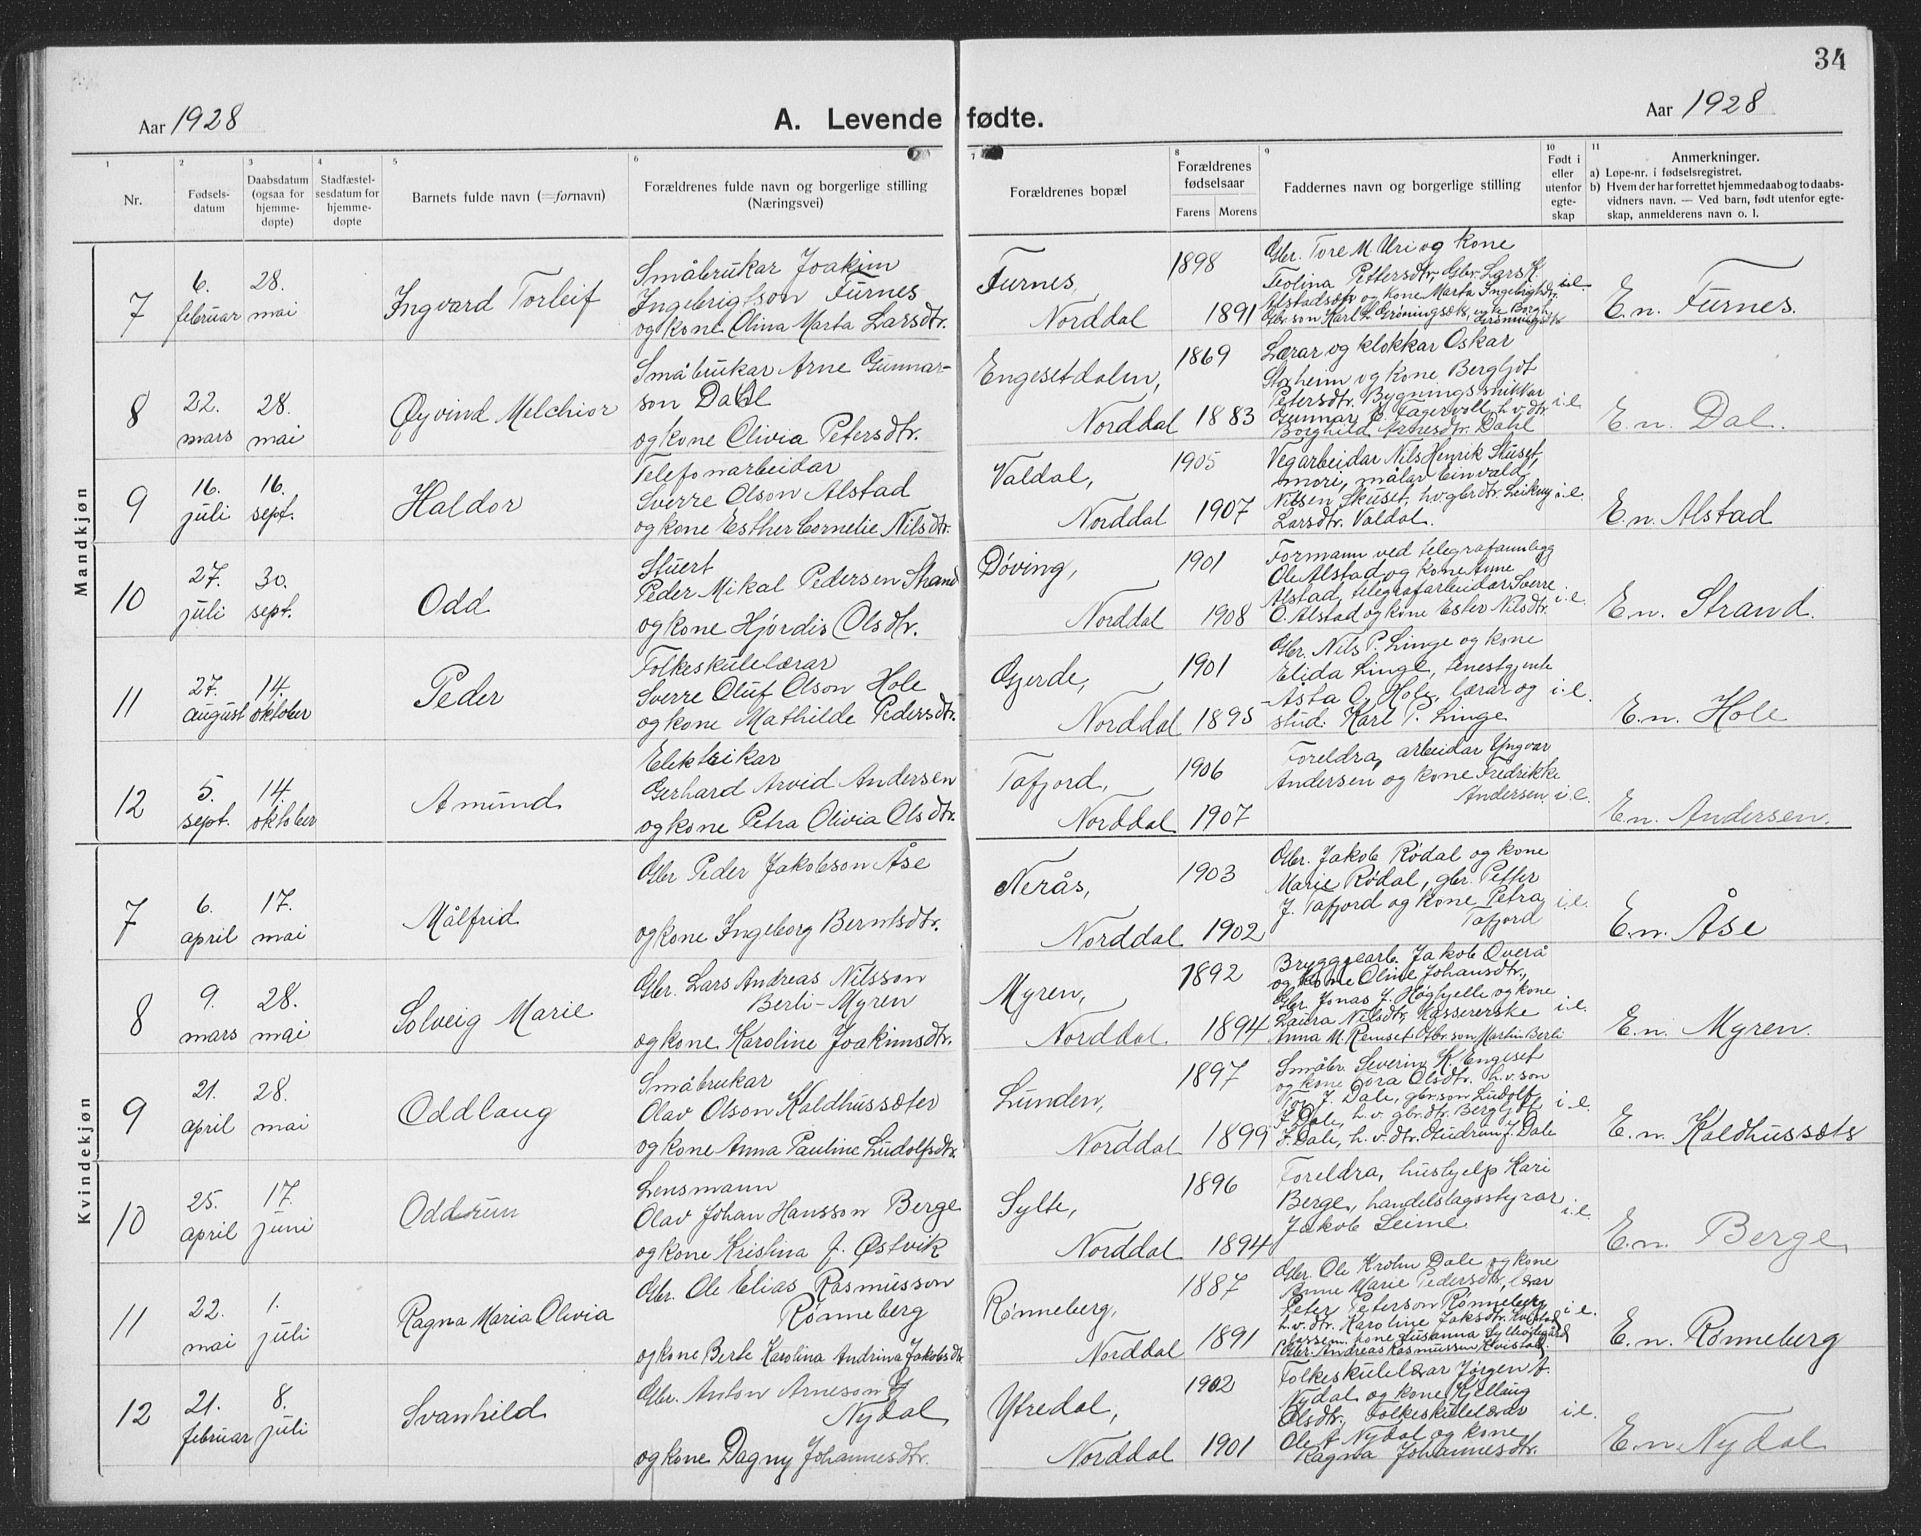 34
Aar 1928
A. Levende fødte.
Aar 1928
1 2 3 4 5 6 7 8 9 10 11
Nr.
Fødsels-
datum
Daabsdatum
(ogsaa for
hjemme-
døpte)
Stadfæstel-
sesdatum for
hjemme-
døpte
Barnets fulde navn (=fornavn)
Forældrenes fulde navn og borgerlige stilling
(Næringsvei)
Forældrenes bopæl
Forældrenes
fødselsaar
Farens Morens
Faddernes navn og borgerlige stilling
Født i
eller
utenfor
egte-
skap
Anmerkninger.
a) Løpe-nr. i fødselsregistret.
b) Hvem der har forrettet hjemmedaab og to daabs-
vidners navn. — Ved barn, født utenfor egte-
skap, anmelderens navn o. l.
Mandkjøn
7
6.
februar
28.
mai
Ingvard Torleif
Småbrukar Joakim
Ingebrigtson Furnes
og kone Olina Marta Larsdtr.
Furnes,
Norddal
1898
1891
Gbr. Tore M. Uri og kone
Teolina Pettersdtr. Gbr. Lars K.
Alstadsæter og kone Marta Ingebrigtsdtr.
Gbr.son Karl L. Grøningsæter,
i.e.
E.n. Furnes.
8
22.
mars
28.
mai
Øyvind Melchior
Småbrukar Arne Gunnar-
son Dahl
og kone Olivia Petersdtr.
Engesetdalen,
Norddal
1869
1883
Lærar og klokkar Oskar
Storheim og kone Bergljot
Petersdtr. Bygningssnikkar
Gunnar E. Fagervoll, h.v.dtr.
Borghild Arnesdtr. Dahl
i.e.
E.n. Dal.
9
16.
juli
16.
sept.
Haldor
Telefonarbeidar
Sverre Olson Alstad
og kone Esther Cornelie Nilsdtr.
Valdal,
Norddal
1905
1907
Vegarbeidar Nils Henrik Skuset,
mori, målar Einvald
Nilsen Skuset, h.v. gbrdtr. Leikny
Larsdtr. Valdal.
i.e.
E.n. Alstad
10
27.
juli
30.
sept.
Odd
Stuert
Peder Mikal Pedersen Strand
og kone Hjördis Olsdtr.
Döving,
Norddal
1901
1908
Formann ved telegrafannlegg
Ole Alstad og kone Anne
Alstad, telegrafarbeidar Sverre
O. Alstad og kone Ester Nilsdtr.
i.e.
E.n. Strand.
11
27.
august
14.
oktober
Peder
Folkeskulelærar
Sverre Oluf Olson Hole
og kone Mathilde Pedersdtr.
Gjerde,
Norddal
1901
1895
Gbr. Nils P. Linge og kone
Elida Linge, tenestgjente
Asta O. Hole, lærar og
stud. Karl P. Linge
i.e.
E.n. Hole
12
5.
sept.
14.
oktober
Amund
Elektrikar
Gerhard Arvid Andersen
og kone Petra Olivia Olsdtr.
Tafjord,
Norddal
1906
1907
Foreldra, arbeidar Yngvar
Andersen og kone Fredrikke
Andersen.
i.e.
E.n. Andersen.
Kvindekjøn
7
6.
april
17.
mai
Målfrid
Gbr Peder Jakobson Åse
og kone Ingeborg Berntsdtr.
Nerås,
Norddal
1903
1902
Gbr. Jakob Rødal og kone
Marie Rødal, gbr. Petter
J. Tafjord og kone Petra
Tafjord
i.e.
E.n. Åse
8
9.
mars
28.
mai
Solveig Marie
Gbr. Lars Andreas Nilsson
Berli-Myren
og kone Karoline Joakimsdtr.
Myren,
Norddal
1892
1894
Bryggearb. Jakob Overå
og kone Oline Johansdtr.,
Gbr. Jonas J. Høghjelle og kone
Laura Nilsdtr, Kassererske
Anna M. Remset Gbr.son Martin Berli
i.e.
E.n. Myren.
9
21.
april
28.
mai
Oddlaug
Småbrukar
Olav Olson Kaldhussæter
og kone Anna Pauline Ludolfsdtr.
Lunden,
Norddal
1897
1899
Småbr. Severin K. Engeset
og kone Tora Olsdtr. h.v. son
Tor J. Dale, gbr.son Ludolf
J. Dale, h.v. gbr.dtr. Bergljot
J. Dale, h.v.dtr. Gudrun J. Dale
i.e.
E.n. Kaldhussæter
10
25.
april
17.
juni
Oddrun
Lensmann
Olav Johan Hansson Berge
og kone Kristina J. Østvik
Sylte,
Norddal
1896
1894
Foreldra, hushjelp Kari
Berge, handelslagsstyrar
Jakob Leime
i.e.
E.n. Berge
11
22.
mai
1.
juli
Ragna Maria Olivia
Gbr. Ole Elias Rasmusson
Rønneberg
og kone Berte Karolina Andrina Jakobsdtr
Rønneberg,
Norddal
1887
1891
Gbr. Ole Krohn Dale og kone
Anne Marie Pedersdtr, lærar
Peter Peterson Rønneberg
h.v.dtr. Karoline Jaksdtr. Kvistad
Gbr. Andreas Rasmussen Kvistad.
i.e.
E.n. Rønneberg
12
21.
februar
8.
juli
Svanhild
Gbr. Anton Arneson
Nydal
og kone Dagny Johannesdtr.
Ytredal,
Norddal
1902
1901
Folkeskulelærar Jørgen A.
Nydal og kone Kjellaug
Olsdtr. Folkeskulelærar
Ole A Nydal og kone
Ragna Johannesdtr.
i.e.
E.n. Nydal